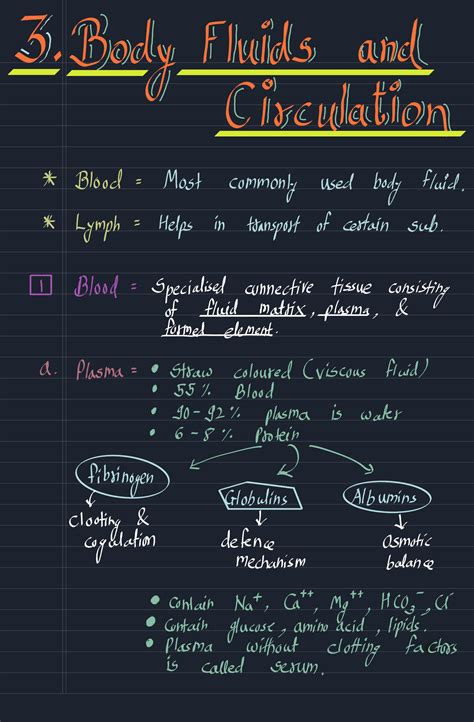 3. Body Fluids and
Circulation
* Blood = Most commonly used body fluid.
* Lymph = Helps in transport of certain sub.
1 Blood = Specialised connective tissue consisting
of fluid matrix, plasma, &
formed element.
a. Plasma = • Straw coloured (viscous fluid)
• 55 % Blood
• 90-92 % plasma is water
• 6-8 % Protein
fibrinogen Globulins Albumins
clooting & defence osmotic
cogulation mechanism balance
• Contain Na+, Ca++, Mg++, HCO3-, Cl
• Contain glucose, amino acid, lipids.
• Plasma without clotting factors
is called serum.